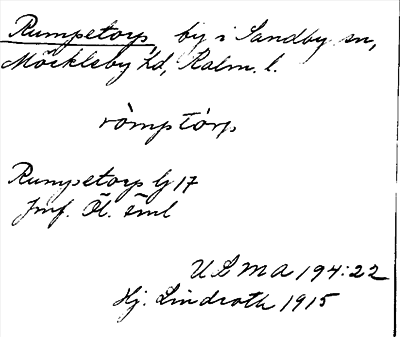 Rumpetorp, by i Sandby sn,
Möckleby hd, Kalm. l.
ròmptórp
Rumpetorp lj 17
Jmf. Öl. saml
ULMA 194:22
Hj. Lindroth 1915